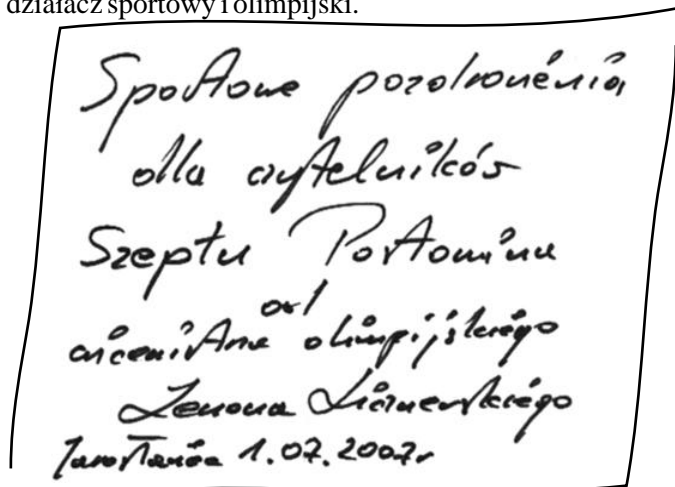 działacz sportowy i olimpijski.
Sportowe pozdrowienia
dla czytelników
Szeptu Portowina
od
wicemistrza olimpijskiego
Zenona Licznerskiego
1.07.2007r